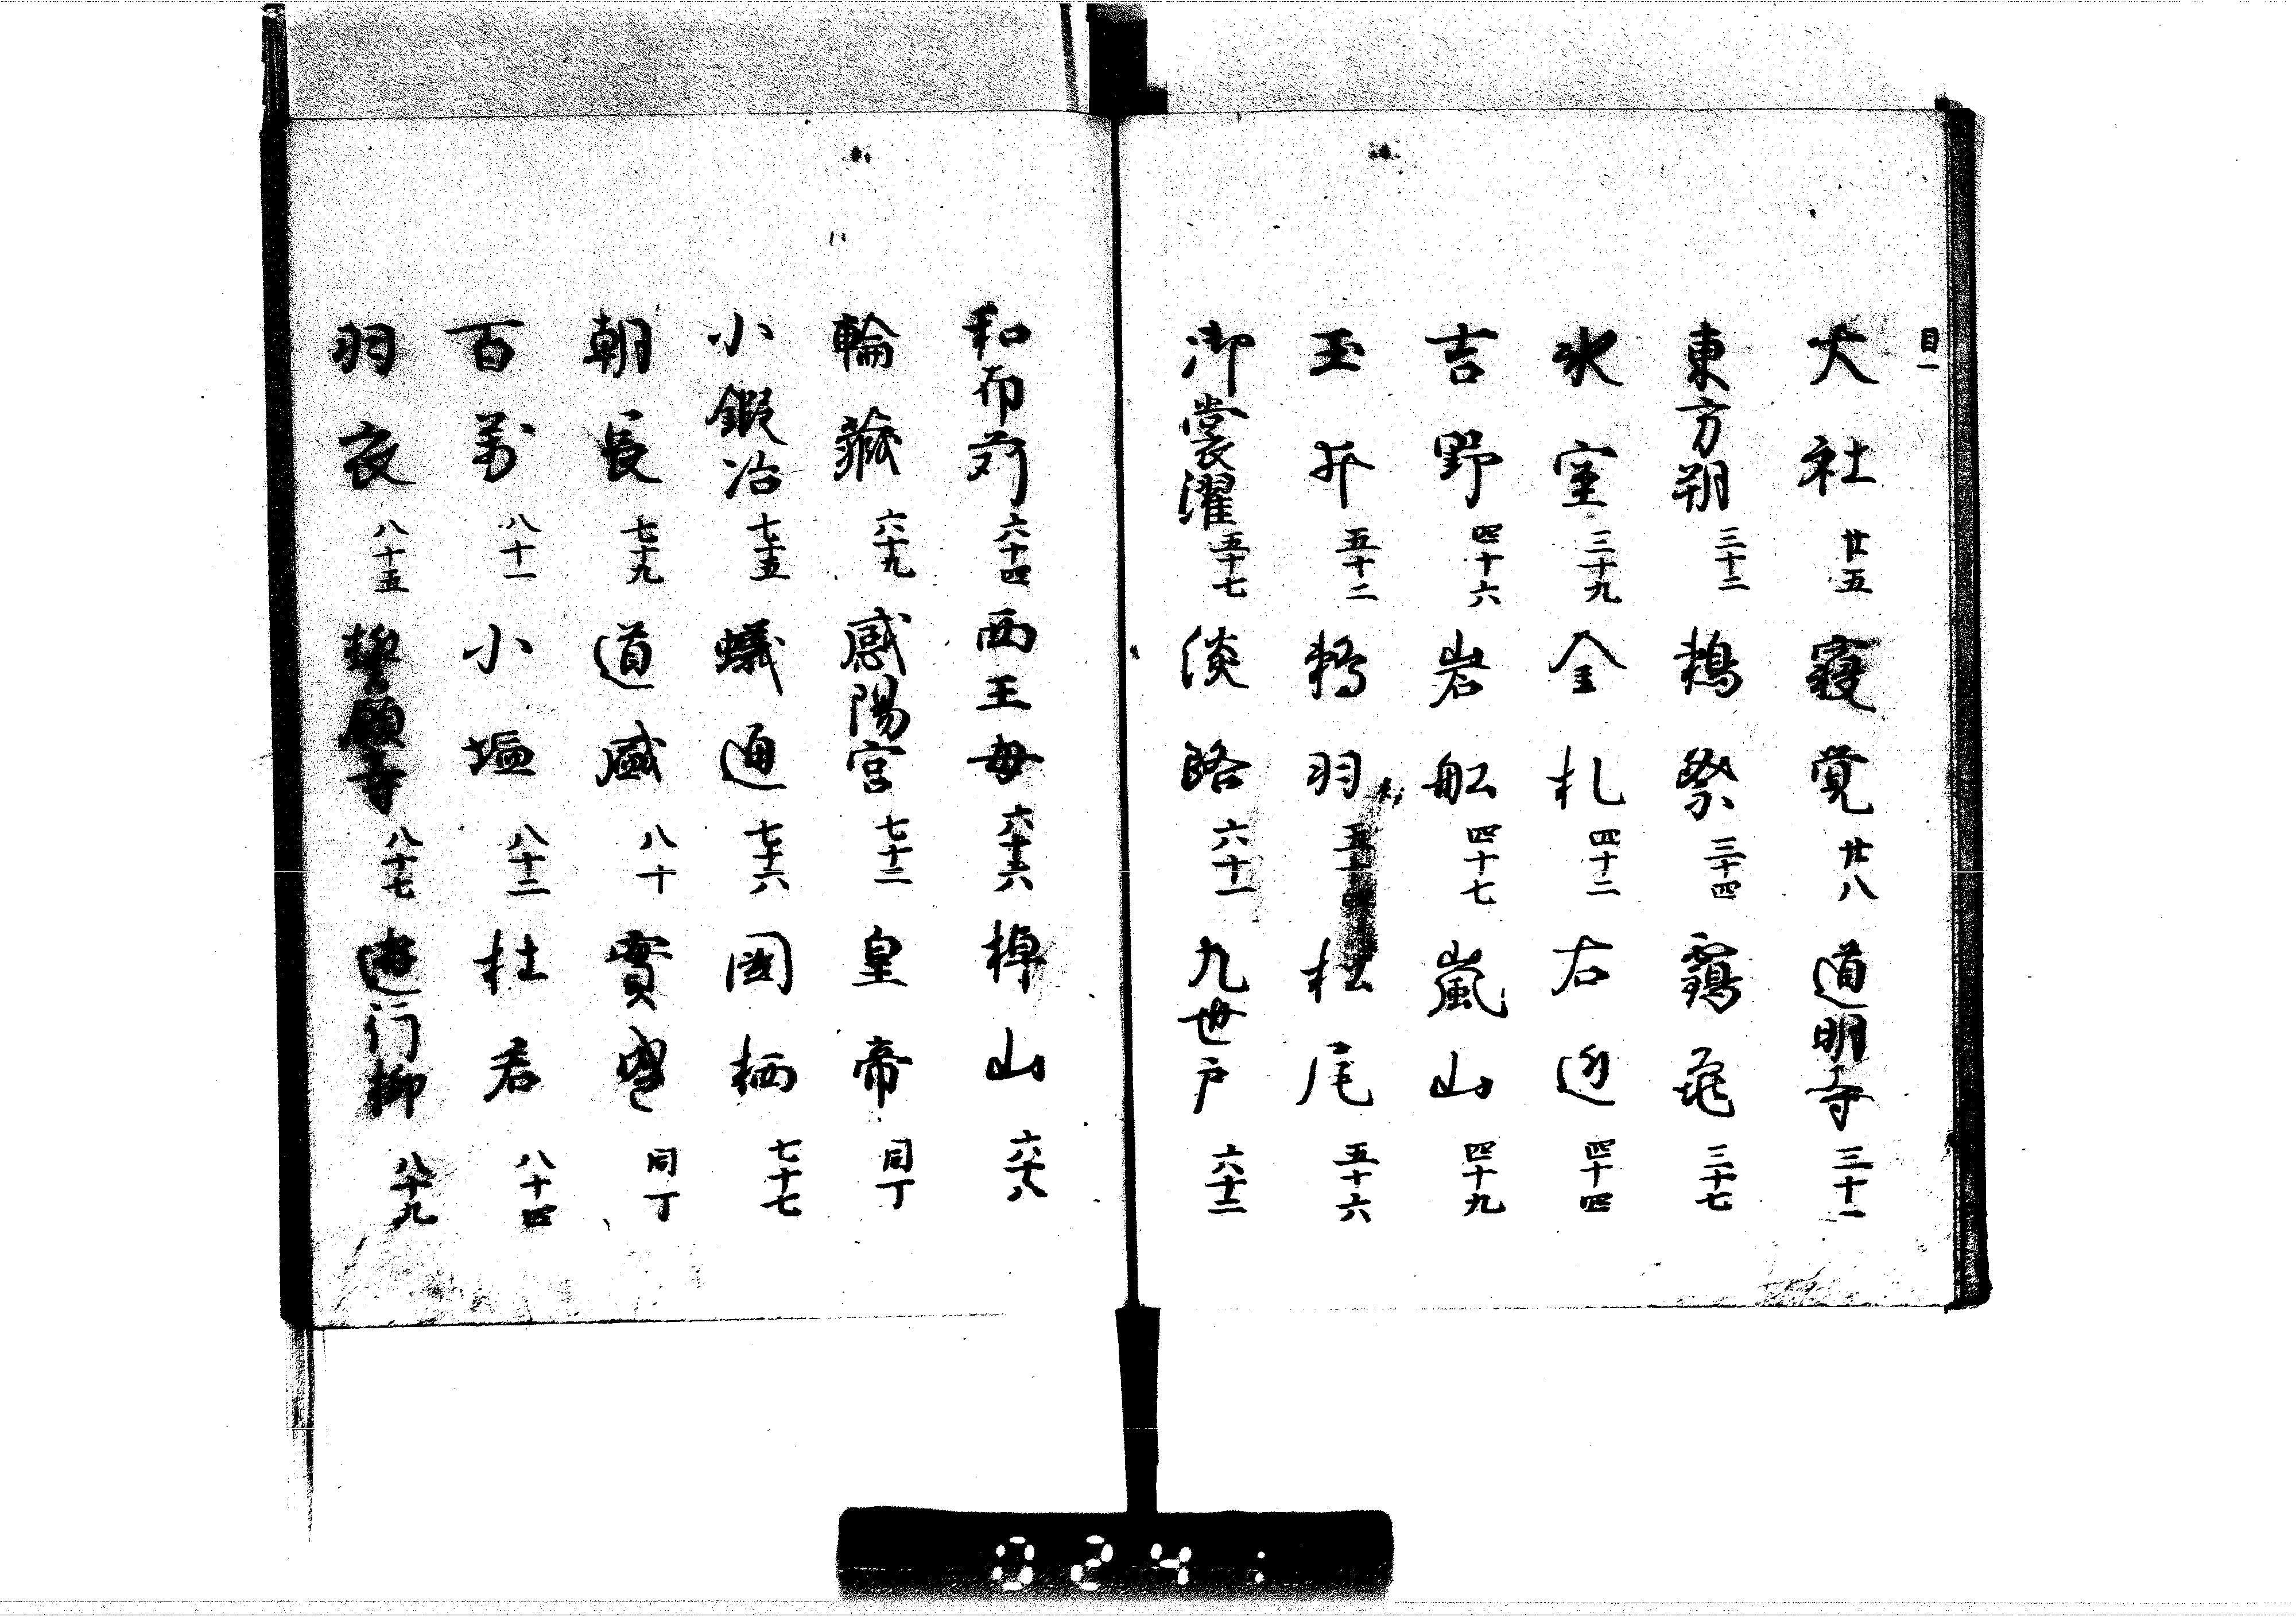 目一
大社 廿五 寝覚 廿八 道明寺 三十一
東方朔 三十二 鵜祭 三十四 靏亀 三十七
氷室 三十九 金札 四十二 右近 四十四
吉野 四十六 岩舩 四十七 嵐山 四十九
玉井 五十二 羽 五十四 松尾 五十六
御裳濯 五十七 淡路 六十一 九世戸 六十二
和布苅 六十四 西王母 六十六 山 六十八
輪蔵 六十九 感陽宮 七十二 皇帝 同丁
小鍜冶 七十五 蟻通 七十六 国栖 七十七
朝長 七十九 道盛 八十 實盛 同丁
百万 八十一 小塩 八十二 杜若 八十四
羽衣 八十五 誓願寺 八十七 遊行柳 八十九
024